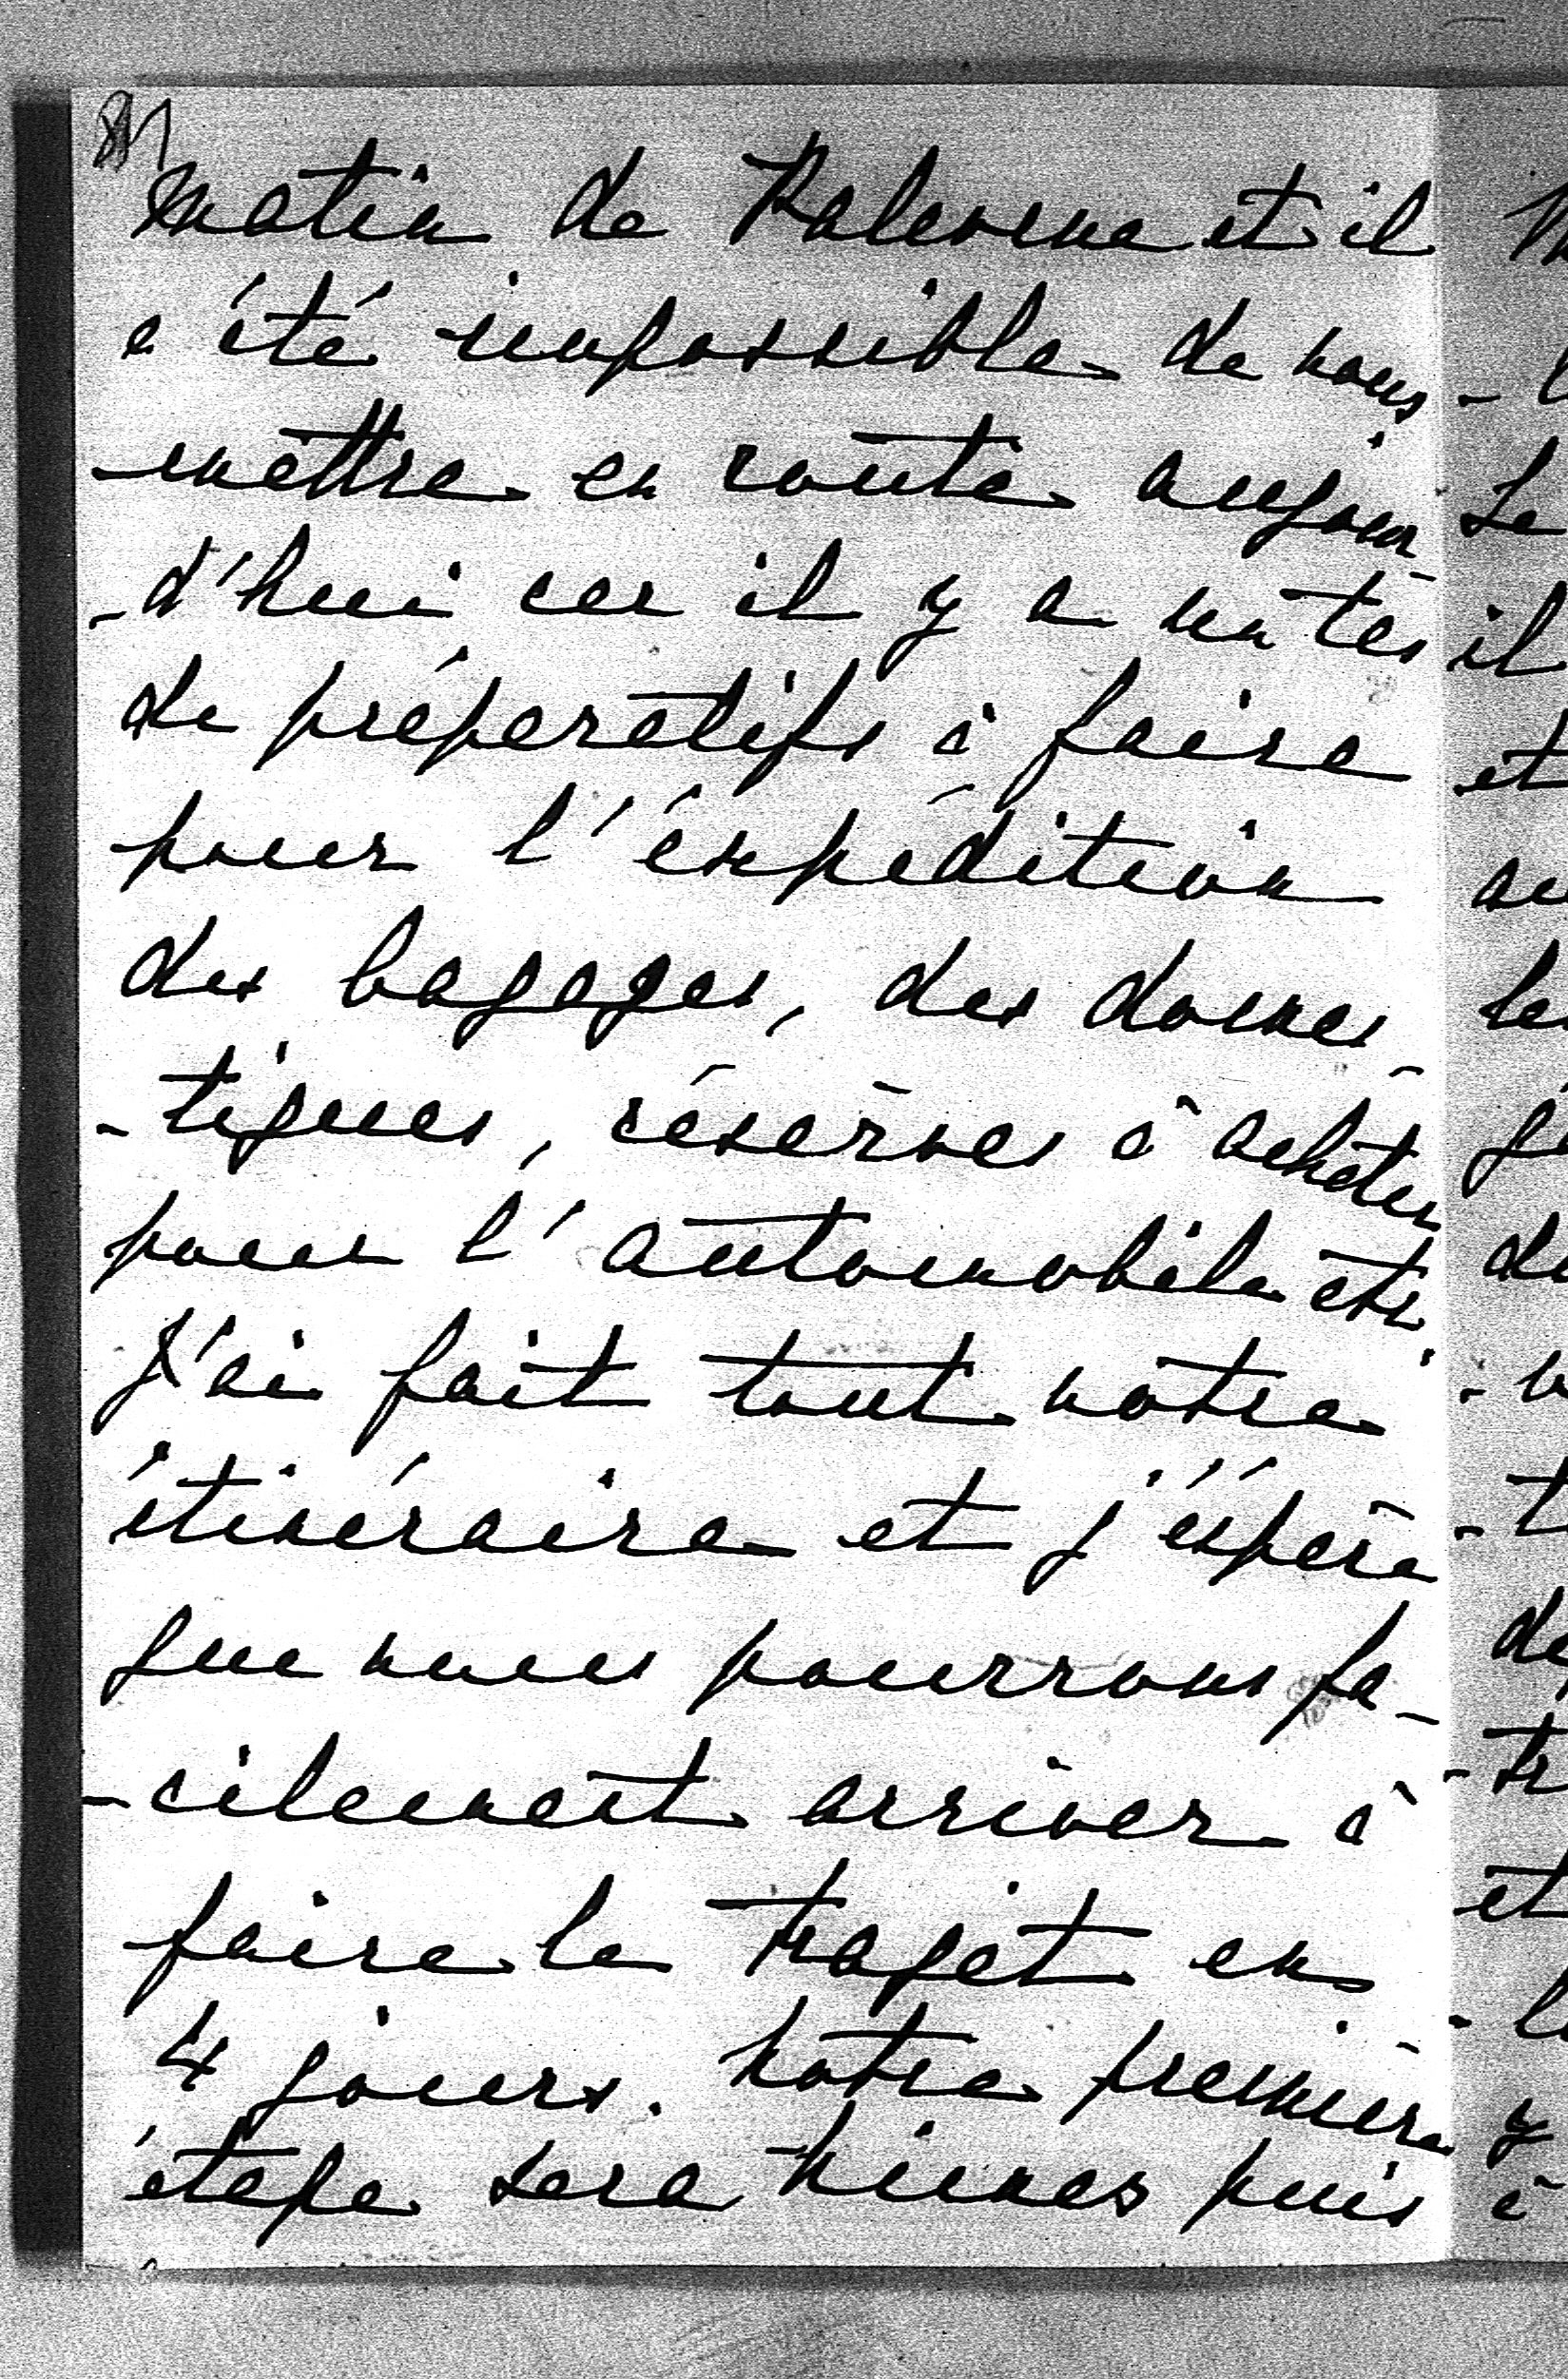 matin de Palerme et il
a été impossible de nous
-mettre en route aujour
-d'hui car il y a un tas
de préparatifs à faire
pour l'éxpédition
des bagages, des domes
-tiques, réserves à acheter
pour l'automobile etc.
J'ai fait tout notre
itinéraire et j'éspère
que nous pourrons fa-
-cilement arriver à
faire le trajet en
4 jours. Notre première
étape sera Nimes puis